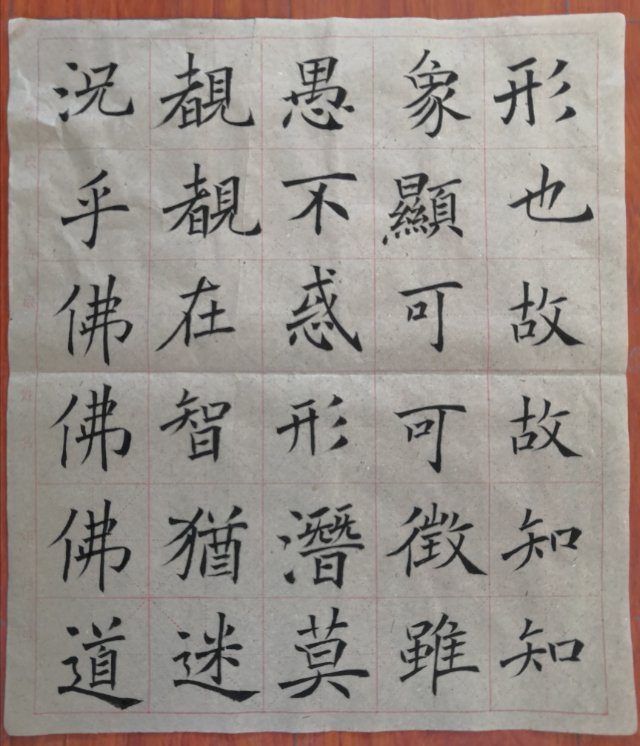 形也故故知知
象顯可可徵雖
愚不惑形潛莫
覩覩在智猶迷
況乎佛佛佛道